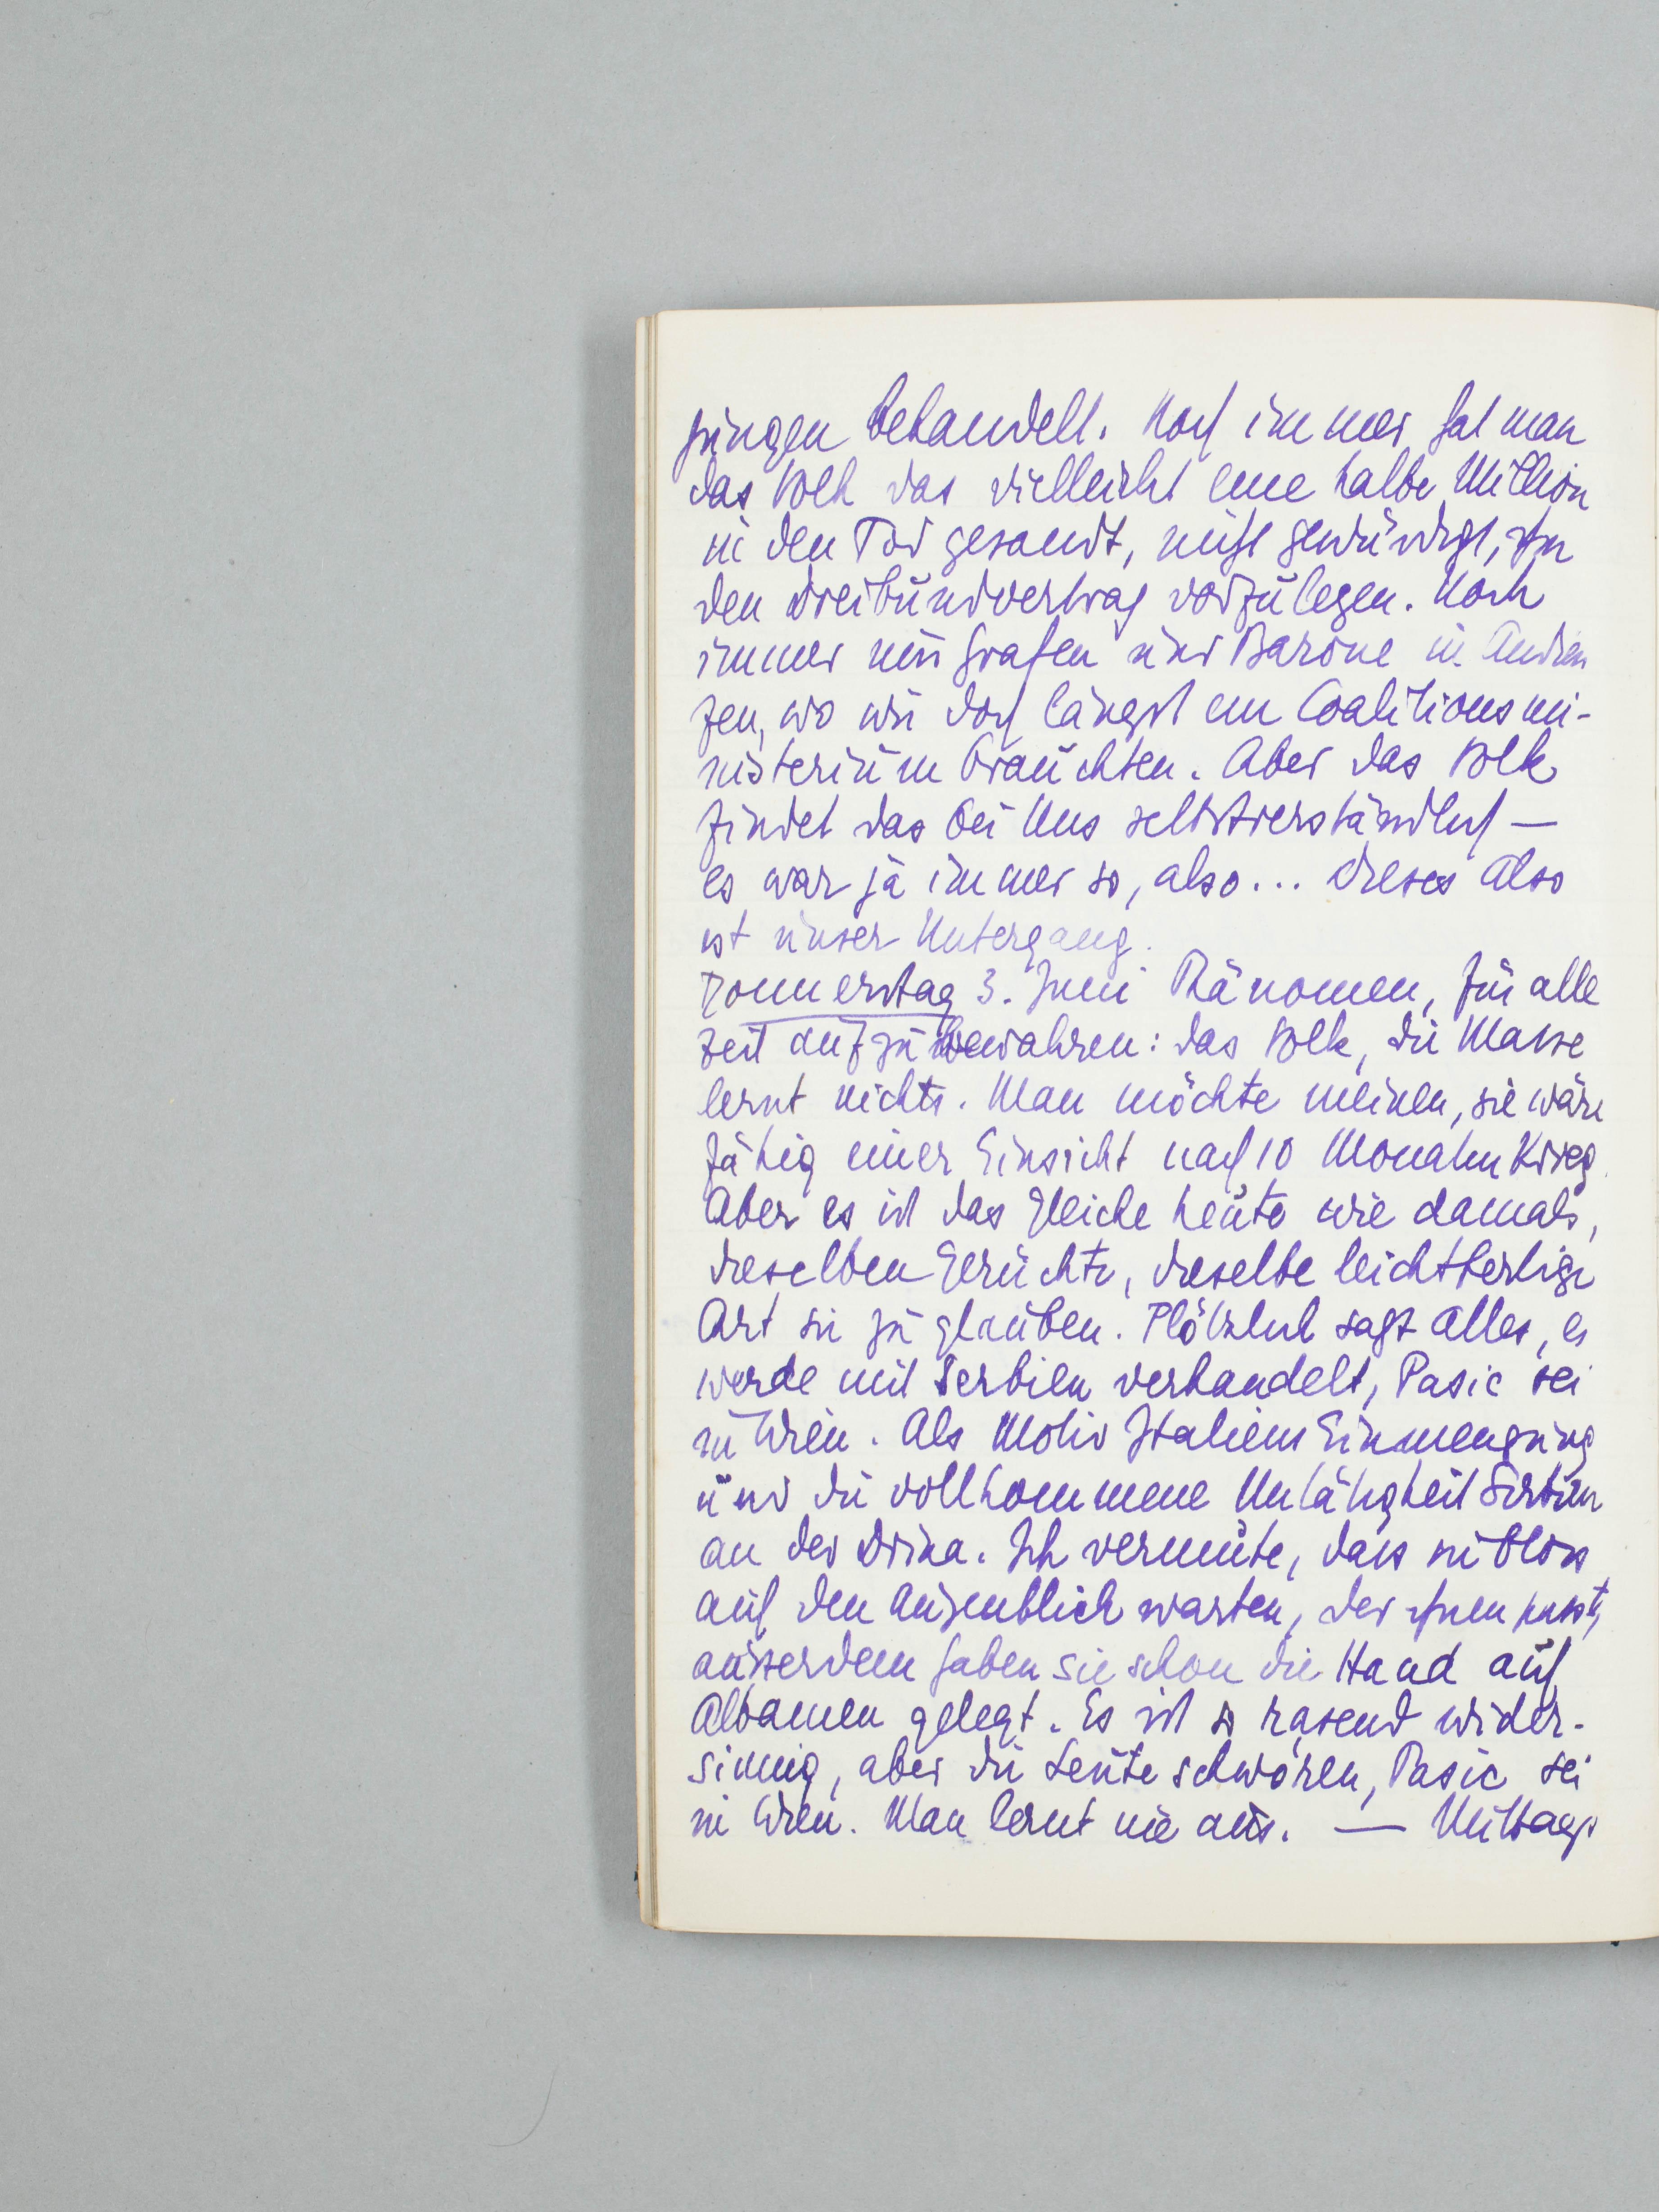 jungen behandelt. Noch immer hat man
das Volk das vielleicht eine halbe Million
in den Tod gesandt, nicht gewürdigt, ihm
den Dreibundvertrag vorzulegen. Noch
immer nur Grafen und Barone in Audien
zen, wo wir doch längst ein Coalitionsmi-
nisterium brauchten. Aber das Volk
findet das bei Uns selbstverständlich —
es war ja immer so, also... Dieses Also
ist unser Untergang.
Donnerstag 3. Juni Phänomen, für alle
Zeit aufzubewahren: das Volk, die Masse
lernt nichts. Man möchte meinen, sie wäre
fähig einer Einsicht nach 10 Monaten Krieg.
Aber es ist das Gleiche heute wie damals,
dieselben Gerüchte, dieselbe leichtfertige
Art sie zu glauben. Plötzlich sagt Alles, es
werde mit Serbien verhandelt, Pasic sei
in Wien. Als Motiv Italiens Einmengung
und die vollkommene Untätigkeit Serbien
an der Drina. Ich vermute, dass sie bloss
auf den Augenblick warten, der ihnen passt,
ausserdem haben sie schon die Hand auf
Albanien gelegt. Es ist so rasend wider-
sinnig, aber die Leute schwören, Pasic sei
in Wien. Man lernt nie aus. — Mittags